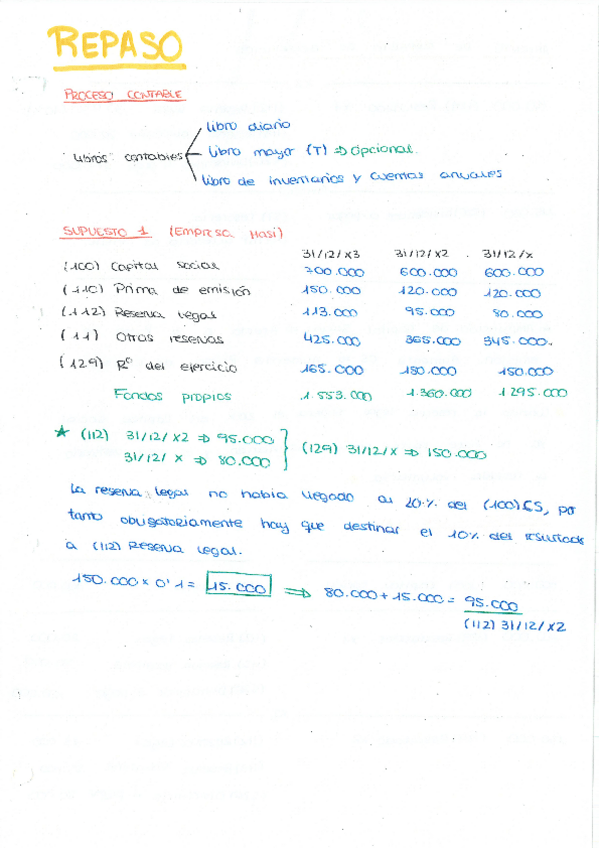 REPASO
PROCESO CONTABLE
libro diario
"libros" contables libro mayor (T) ⇒ opcional
libro de inventarios y cuentas anuales
SUPUESTO 1 (Empresa Hasi)
31/12/X3 31/12/X2 31/12/X
(100) Capital social 700.000 600.000 600.000
(110) Prima de emisión 150.000 120.000 120.000
(112) Reserva legal 113.000 95.000 80.000
(11) Otras reservas 425.000 365.000 345.000
(129) Rº del ejercicio 165.000 180.000 150.000
Fondos propios 1.553.000 1.360.000 1295.000
★ (112) 31/12/X2 ⇒ 95.000
31/12/X ⇒ 80.000 } (129) 31/12/X ⇒ 150.000
La reserva legal no había llegado al 20% del (100) CS, por
tanto obligatoriamente hay que destinar el 10% del resultado
a (112) Reserva legal.
150.000 x 0'1 = 15.000 ⇒ 80.000 + 15.000 = 95.000
(112) 31/12/X2